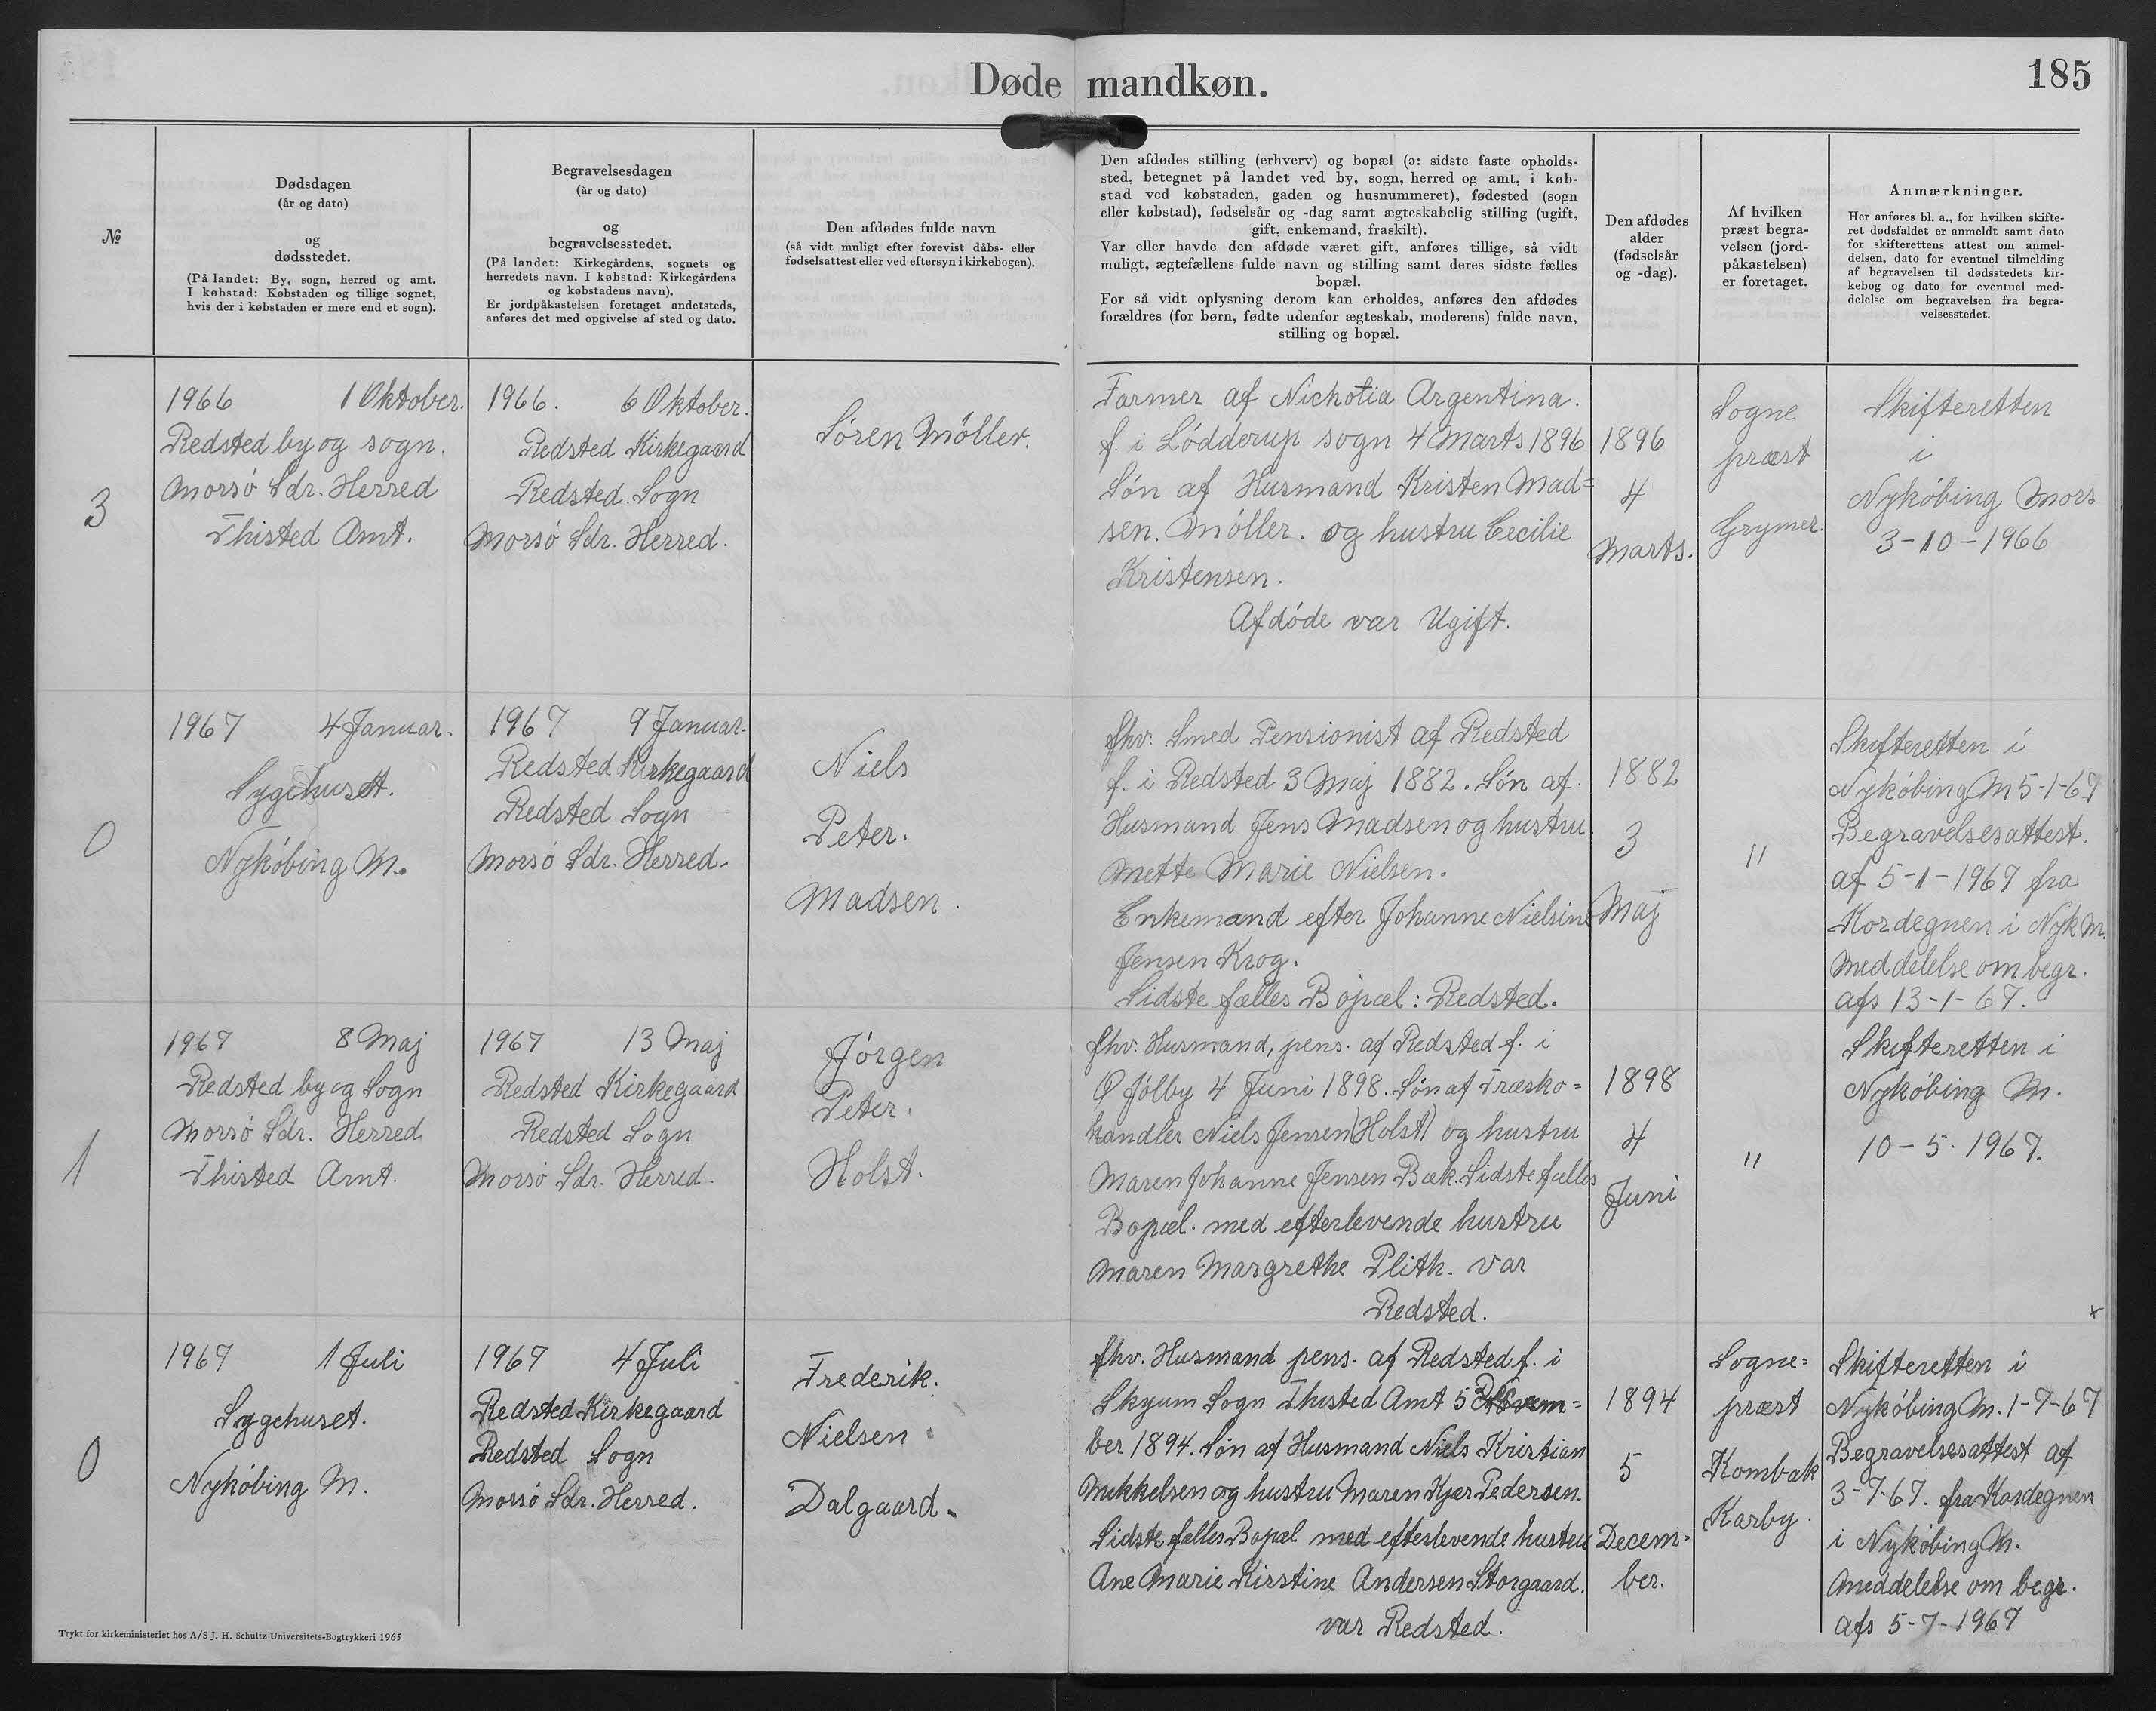 Døde mandkøn.
185
№
Dødsdagen
(år og dato)
og
dødsstedet.
(På landet: By, sogn, herred og amt.
I købstad: Købstaden og tillige sognet,
hvis der i købstaden er mere end et sogn).
Begravelsesdagen
(år og dato)
og
begravelsesstedet.
(På landet: Kirkegårdens, sognets og
herredets navn. I købstad: Kirkegårdens
og købstadens navn).
Er jordpåkastelsen foretaget andetsteds,
anføres det med opgivelse af sted og dato.
Den afdødes fulde navn
(så vidt muligt efter forevist dåbs- eller
fødselsattest eller ved eftersyn i kirkebogen).
Den afdødes stilling (erhverv) og bopæl (ɔ: sidste faste opholds-
sted, betegnet på landet ved by, sogn, herred og amt, i køb-
stad ved købstaden, gaden og husnummeret), fødested (sogn
eller købstad), fødselsår og -dag samt ægteskabelig stilling (ugift,
gift, enkemand, fraskilt).
Var eller havde den afdøde været gift, anføres tillige, så vidt
muligt, ægtefællens fulde navn og stilling samt deres sidste fælles
bopæl.
For så vidt oplysning derom kan erholdes, anføres den afdødes
forældres (for børn, fødte udenfor ægteskab, moderens) fulde navn,
stilling og bopæl.
Den afdødes
alder
(fødselsår
og -dag).
Af hvilken
præst begra-
velsen (jord-
påkastelsen)
er foretaget.
Anmærkninger.
Her anføres bl. a., for hvilken skifte-
ret dødsfaldet er anmeldt samt dato
for skifterettens attest om anmel-
delsen, dato for eventuel tilmelding
af begravelsen til dødsstedets kir-
kebog og dato for eventuel med-
delelse om begravelsen fra begra-
velsesstedet.
3
1966 1 Oktober.
Redsted by og sogn.
Morsö Sdr. Herred
Thisted Amt.
1966. 6 Oktober.
Redsted Kirkegaard
Redsted Sogn
Morsö Sdr. Herred.
Sören Möller.
Farmer af Nichotia Argentina.
f. i Lödderup sogn 4 Marts 1896
Sön af Husmand Kristen Mad=
sen. Möller. og hustru Cecilie
Kristensen.
Afdöde var Ugift.
1896
4
Marts.
Sogne
præst
Grymer.
Skifteretten
i
Nyköbing Mors
3-10-1966
0
1967 4 Januar.
Sygehuset.
Nyköbing M.
1967 9 Januar.
Redsted Kirkegaard
Redsted Sogn
Morsö Sdr. Herred.
Niels
Peter.
Madsen.
fhv. Smed Pensionist af Redsted
f. i Redsted 3 Maj 1882. Sön af.
Husmand Jens Madsen og hustru
Mette Marie Nielsen.
Enkemand efter Johanne Nielsine
Jensen Krog.
Sidste fælles Bopæl: Redsted.
1882
3
Maj
"
Skifteretten i
Nyköbing M 5-1-67
Begravelsesattest.
af 5-1-1967 fra
Kordegnen i Nyk M.
Meddelelse om begr.
afs 13-1-67.
1
1967 8 Maj
Redsted by og Sogn
Morsö Sdr. Herred
Thisted Amt.
1967 13 Maj
Redsted Kirkegaard
Redsted Sogn
Morsö Sdr. Herred.
Jörgen
Peter.
Holst.
fhv. Husmand, pens. af Redsted f. i
Ø Jölby 4 Juni 1898. Sön af Træsko=
handler Niels Jensen (Holst) og hustru
Maren Johanne Jensen Bæk. Sidste fælles
Bopæl. med efterlevende hustru
Maren Margrethe Plith. var
Redsted.
1898
4
Juni
"
Skifteretten i
Nyköbing M.
10-5-1967.
x
0
1967 1 Juli
Sygehuset.
Nyköbing M.
1967 4 Juli
Redsted Kirkegaard
Redsted Sogn
Morsö Sdr. Herred.
Frederik.
Nielsen
Dalgaard.
fhv. Husmand pens. af Redsted f. i
Skyum Sogn Thisted Amt 5
ber 1894. Sön af Husmand Niels Kristian
Mikkelsen og hustru Maren Kjær Pedersen.
Sidste fælles Bopæl med efterlevende hustru
Ane Marie Kirstine Andersen Storgaard.
var Redsted.
1894
5
Decem=
ber.
Sogne=
præst
Kombak
Karby.
Skifteretten i
Nyköbing M. 1-7-67
Begravelsesattest af
3-7-67. fra Kordegnen
i Nyköbing M.
Meddelelse om begr.
afs 5-7-1967
Trykt for kirkeministeriet hos A/S J. H. Schultz Universitets-Bogtrykkeri 1965